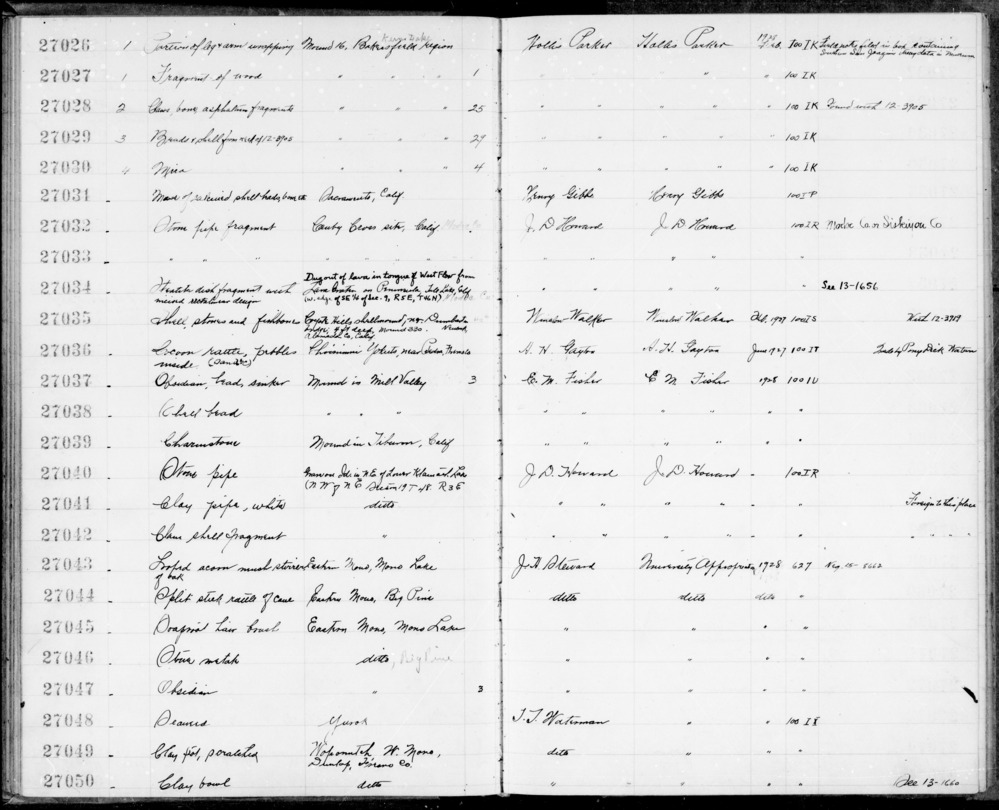 27026 1 Portion of leg & arm wrapping Mound 16, Bakersfield region Kern Lake Hollis Parker Hollis Parker Feb. 100 IK Field notes filed in box containing
Museum
27027 1 Fragment of wood " " " 1 " " " 100 IK
27028 2 Claws, bone, asphaltum fragments " " " 25 " " " 100 IK Found with 12-3905
27029 3 Beads & shell from neck of 12-3905 " " " 29 " " " 100 IK
27030 4 Mica " " " 4 " " " 100 IK
27031 Sacramento, Calif. Henry Gibbs Henry Gibbs 100 IP
27032 Stone pipe fragment Canby Caves site, Calif J. D. Howard J. D. Howard 100 IR Modoc Co or Siskiyou Co
27033 " " " " " " " "
27034 dish fragment with
incised rectilinear design Dug out of lava in tongue of West Flow from
Lava on Peninsula, Tule Lake, Calif
(W. edge of SE ¼ of Sec. 9, R5E, T46N) " " " See 13-1656
27035 Shell stones and fishbone Coyote Hills Shellmound, nr. Dumbarton
Bridge, 9 ft deep, Mound 330. Newark,
Alameda Co, Calif Winslow Walker Winslow Walker Feb. 1927 100 IS With 12-3919
27036 Cocoon rattle, pebbles
inside Yokuts, near Friant, Fresno Co A. H. Gayton A. H. Gayton June 1927 100 IT Made by Dick Watson
27037 Obsidian, bead, sinker Mound in Mill Valley 3 E. M. Fisher E. M. Fisher 1928 100 IU
27038 Shell bead " " " " " " "
27039 Charmstone Mound in Tiburon, Calif " " " " "
27040 Stone pipe N.E. of Lower Klamath Lake
(N W of N E Section 19 T 48 R 3 E J. D. Howard J. D. Howard 100 IR
27041 Clay pipe, white ditto " " " " " Foreign to this place
27042 Clam shell fragment " " " " " "
27043 Looped acorn mush stirrer
of oak Eastern Mono, Mono Lake J. H. Steward University Appropriation 1928 627 Neg. 15-8662
27044 Split stick rattle of cane Eastern Mono, Big Pine ditto ditto ditto "
27045 Soaproot hair brush Eastern Mono, Mono Lake " " " "
27046 Stone metate ditto, Big Pine " " " "
27047 Obsidian " 3 " " " "
27048 Yurok T. T. Waterman " " 100 IX
27049 Clay pot, scratched W. Mono,
Dunlap, Fresno Co. ditto " " "
27050 Clay bowl ditto " " " " See 13-1660